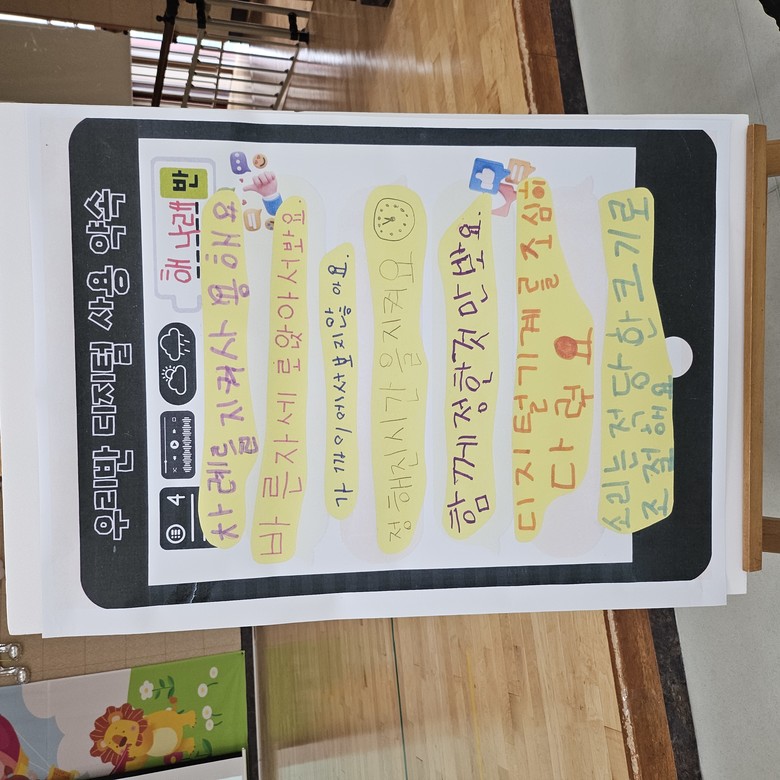 우리반 디지털 사용 약속
4
해 나래 반
차례를 지켜사용해요
바른자세로앉아서봐요.
가까이에서보지않아요.
정해진시간을지켜요
함께정한것만봐요.
디지털기계를조심히
다뤄요
소리는적당한크기로
조절해요